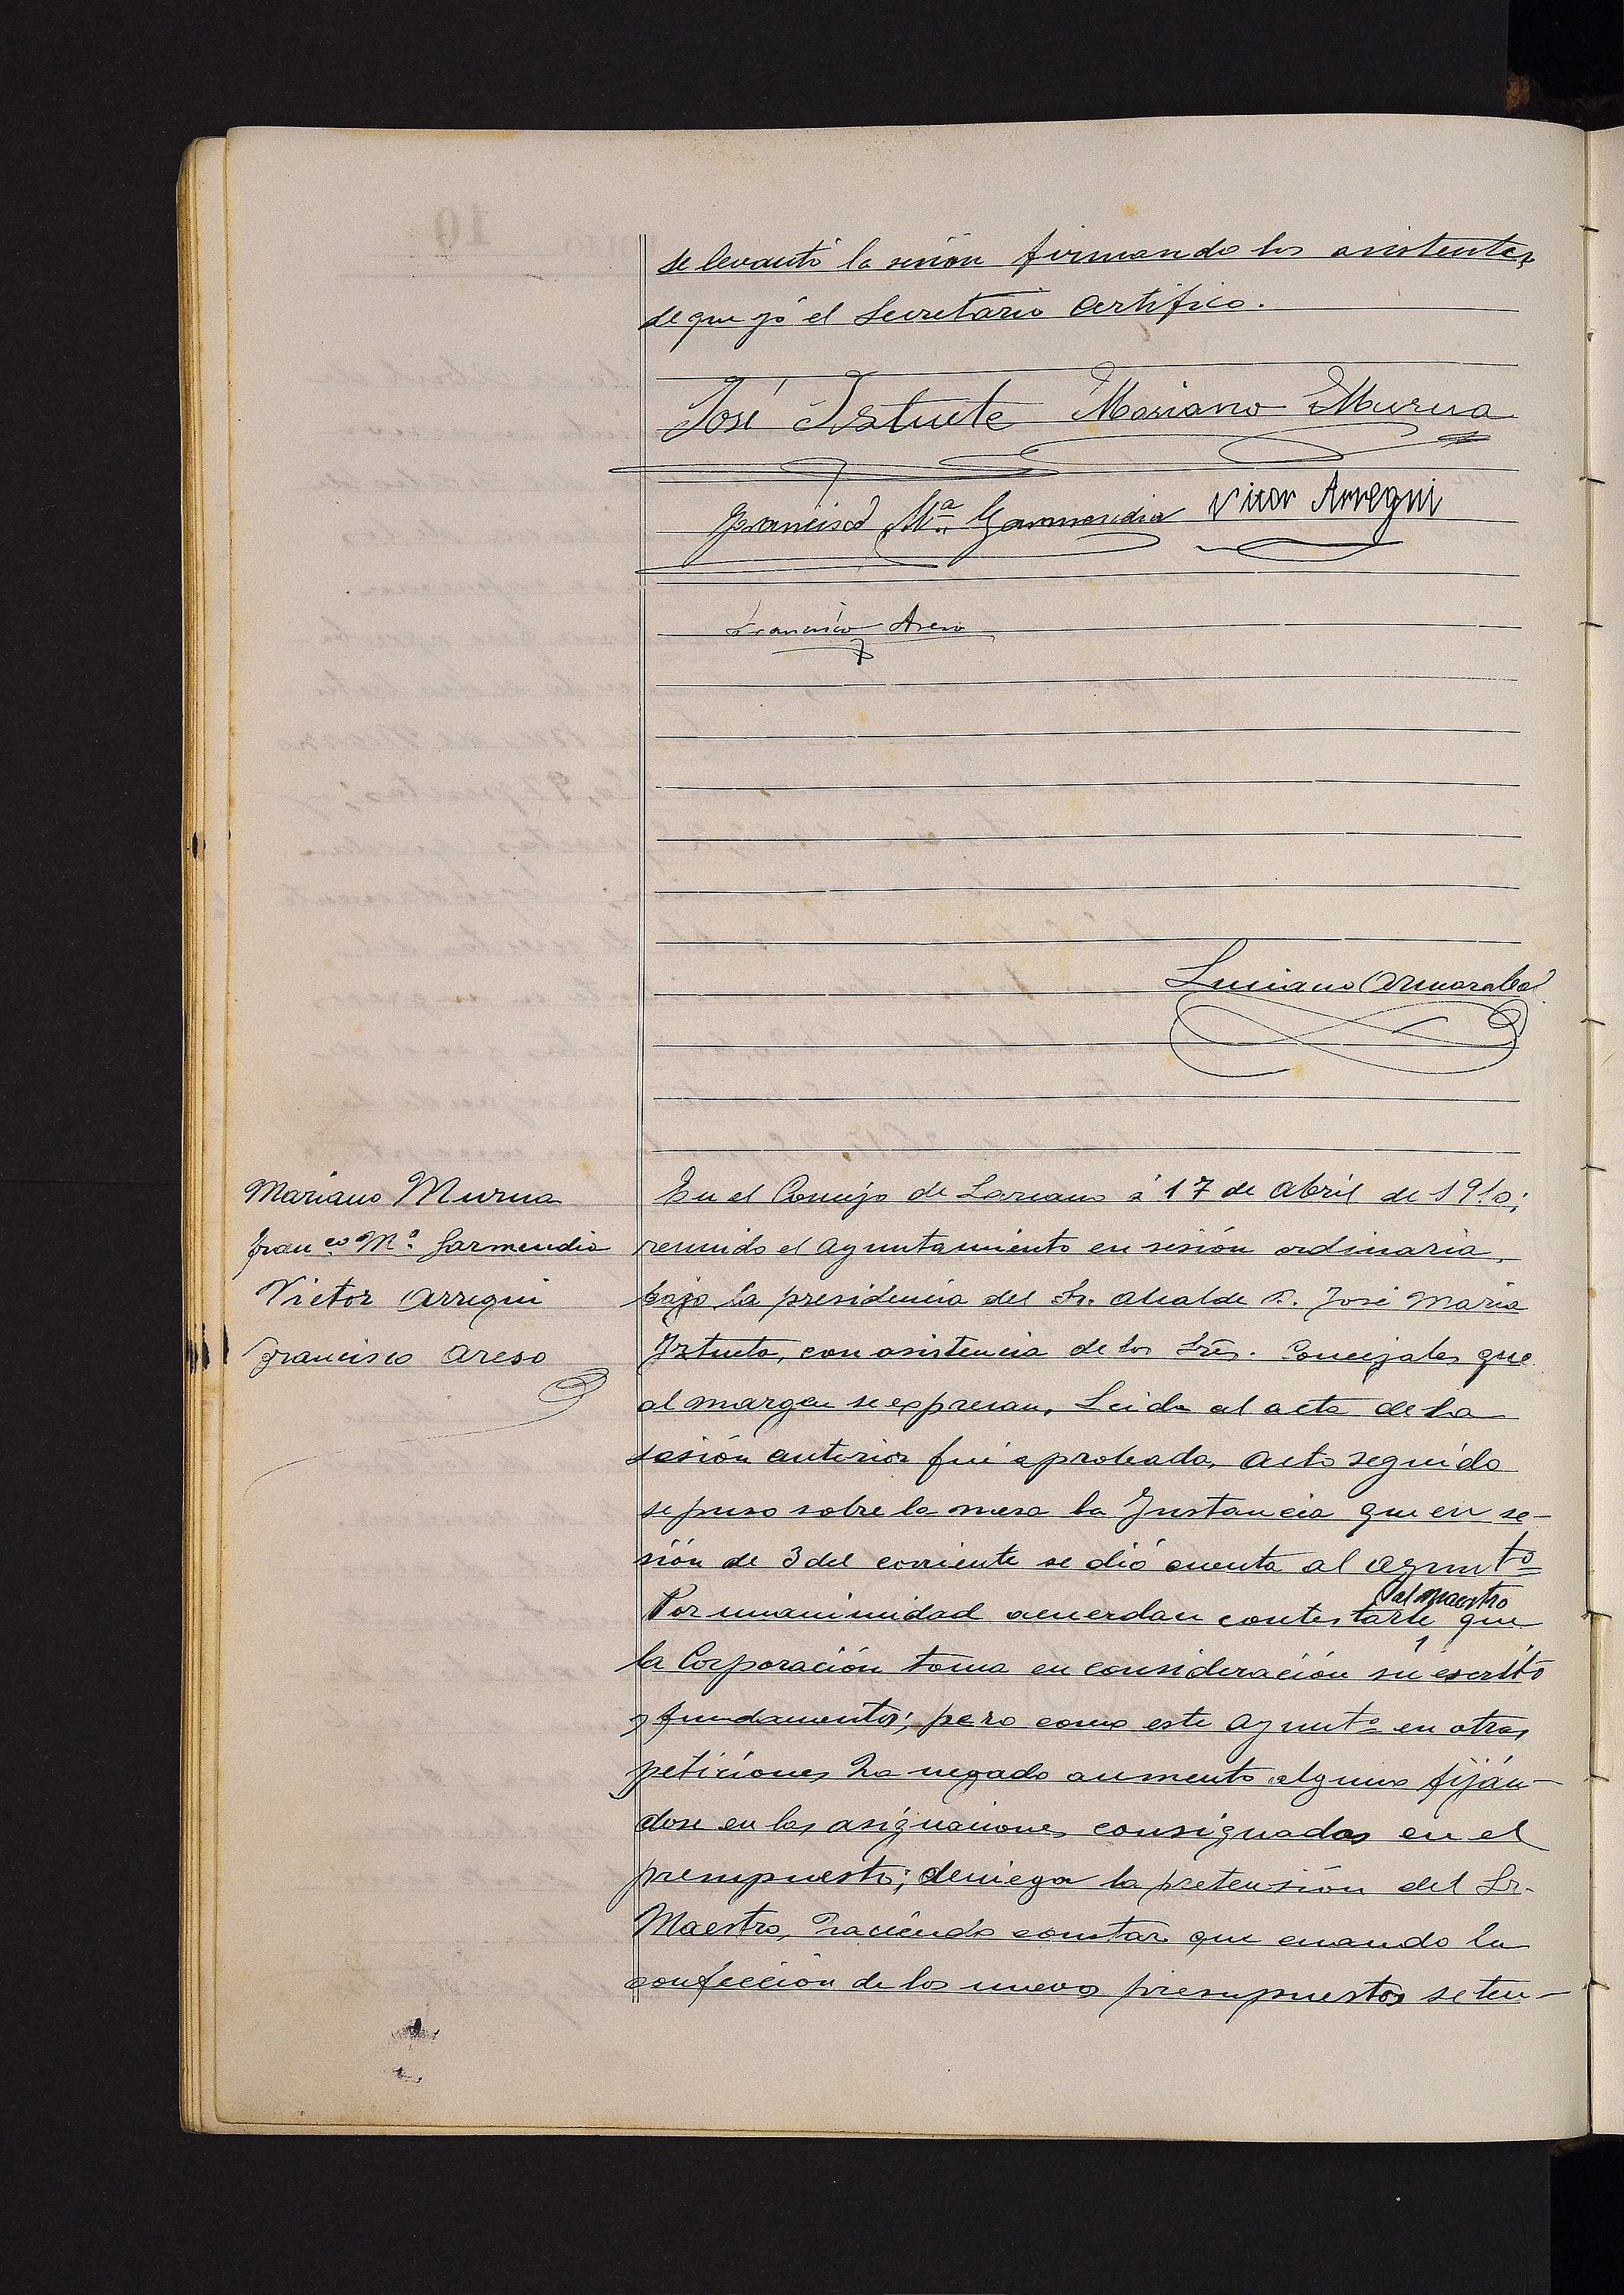 se levantó la sesión firmando los asistentes,
de que yó el Secretario Certifico.
José Iztueta Mariano Murua
Francisco Mª Garmendia Vitor Arregui
Francisco Areso
Luciano
Mariano Murua
Franco Mª Garmendia
Victor Arregui
Francisco Areso
En el Concejo de Lazcano á 17 de Abril de 1910;
reunido el Ayuntamiento en sesión ordinaria,
bajo la presidencia del Sr. Alcalde D. José Maria
Iztueta, con asistencia de los Srēs. Concejales que
al margen se expresan, Leida el acta de la
sesión anterior fué aprobada, Acto seguido
se puso sobre la mesa la Instancia que en se-
sión de 3 del corriente se dió cuenta al Ayuntº
Por unanimidad acuerdan contestarle al Maestro que
la Corporación toma en consideración sú escrito
y fundamentos; pero como este Ayuntº en otras
peticiones ha negado aumento alguno fiján-
dose en las asignaciones consignadas en el
presupuesto; deniega la pretensión del Sr.
Maestro, haciendo constar que cuando la
confección de los nuevos presupuestos se ten-